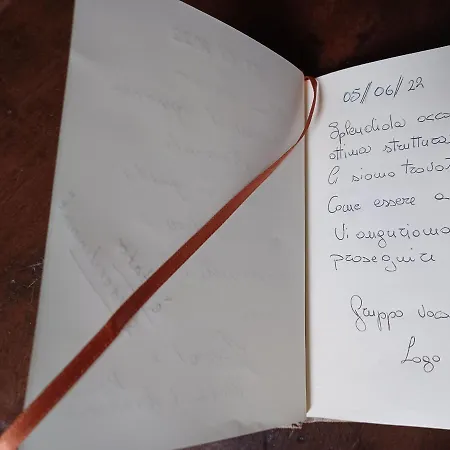 05//06//22
Splendida acco
ottima struttura
Ci siamo trovat
Come essere a
Vi auguriamo
proseguire
Gruppo voca
Logo